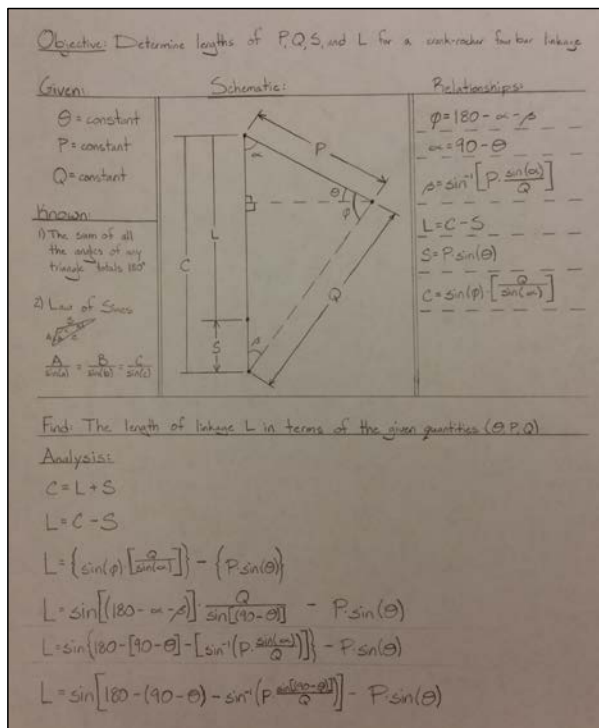 Objective: Determine lengths of P, Q, S, and L for a crank-rocker four bar linkage
Given:
θ = constant
P = constant
Q = constant
Known:
1) The sum of all
the angles of any
triangle totals 180°
2) Law of Sines
A/sin(a) = B/sin(b) = C/sin(c)
Schematic:
α
P
θ
φ
L
C
Q
S
β
Relationships:
φ = 180 - α - β
α = 90 - θ
β = sin⁻¹[P · sin(α)/Q]
L = C - S
S = P · sin(θ)
C = sin(φ) · [Q/sin(α)]
Find: The length of linkage L in terms of the given quantities (θ, P, Q)
Analysis:
C = L + S
L = C - S
L = {sin(φ) · [Q/sin(α)]} - {P · sin(θ)}
L = sin[(180 - α - β)] · Q/sin[(90 - θ)] - P · sin(θ)
L = sin{180 - [90 - θ] - [sin⁻¹(P · sin(α)/Q)]} - P · sin(θ)
L = sin[180 - (90 - θ) - sin⁻¹(P · sin[(90 - θ)]/Q)] - P · sin(θ)